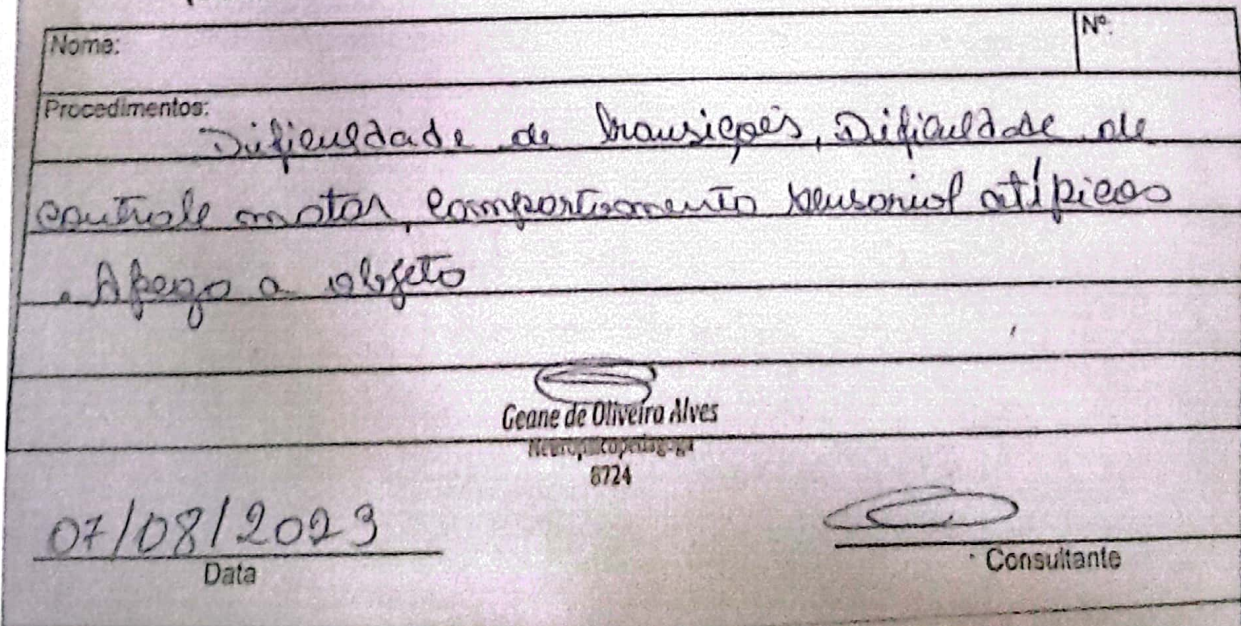 Nome:
Nº.
Procedimentos:
Dificuldade de transições, Dificuldade de
controle motor, comportamento sensorial atípicos
. Apego a objeto
Geane de Oliveira Alves
Neuropsicopedagoga
8724
07/08/2023
Data
Consultante